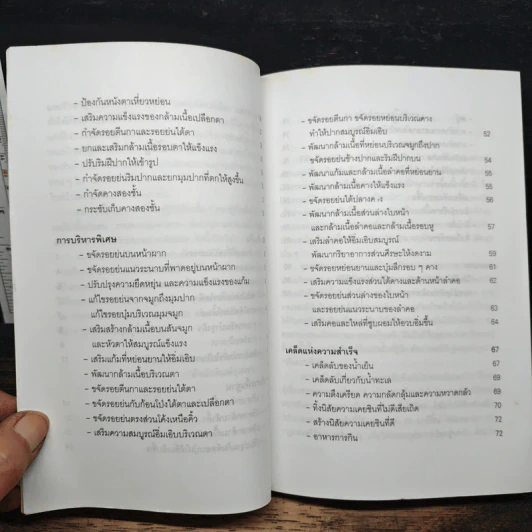 - ป้องกันหนังตาเหี่ยวหย่อน
- เสริมความแข็งแรงของกล้ามเนื้อเปลือกตา
- กำจัดรอยตีนกาและรอยย่นใต้ตา
- ยกและเสริมกล้ามเนื้อรอบตาให้แข็งแรง
- ปรับริมฝีปากให้เข้ารูป
- กำจัดรอยย่นริมปากและยกมุมปากที่ตกให้สูงขึ้น
- กำจัดคางสองชั้น
- กระชับเก็บคางสองชั้น
การบริหารพิเศษ
- ขจัดรอยย่นบนหน้าผาก
- ขจัดรอยย่นแนวระนาบที่พาดอยู่บนหน้าผาก
- ปรับปรุงความยืดหยุ่น และความแข็งแรงของแก้ม
- แก้ไขรอยย่นจากจมูกถึงมุมปาก
แก้ไขรอยบุ๋มบริเวณมุมจมูก
- เสริมสร้างกล้ามเนื้อบนสันจมูก
และหัวตาให้สมบูรณ์แข็งแรง
- เสริมแก้มที่หย่อนยานให้อิ่มเอิบ
- พัฒนากล้ามเนื้อบริเวณตา
- ขจัดรอยตีนกาและรอยย่นใต้ตา
- ขจัดรอยย่นกับก้อนโปงใต้ตาและเปลือกตา
- ขจัดรอยย่นตรงส่วนโค้งเหนือคิ้ว
- เสริมความสมบูรณ์อิ่มเอิบบริเวณตา
- ขจัดรอยตีนกา ขจัดรอยหย่อนบริเวณคาง
ทำให้ปากสมบูรณ์อิ่มเอิบ 52
- พัฒนากล้ามเนื้อที่หย่อนบริเวณจมูกถึงปาก
ขจัดรอยย่นข้างปากและริมฝีปากบน 54
- พัฒนาแก้มและกล้ามเนื้อลำคอที่หย่อนยาน 55
- พัฒนากล้ามเนื้อคางให้แข็งแรง 56
- ขจัดรอยย่นใต้ปลางคาง 56
- พัฒนากล้ามเนื้อส่วนล่างใบหน้า
และกล้ามเนื้อลำคอและกล้ามเนื้อรอบหู 57
- เสริมลำคอให้อิ่มเอิบสมบูรณ์
พัฒนากริยาอาการส่วนศีรษะให้งดงาม 59
- ขจัดรอยหย่อนยานและปุ่มลึกรอบ ๆ คาง 61
- เสริมความแข็งแรงส่วนใต้คางและด้านหน้าลำคอ 62
- ขจัดรอยย่นส่วนล่างของใบหน้า
และรอยย่นแนวระนาบของลำคอ 63
- เสริมคอและไหล่ที่ซูบผอมให้อวบอิ่มขึ้น 64
เคล็ดแห่งความสำเร็จ 67
- เคล็ดลับของน้ำเย็น 67
- เคล็ดลับเกี่ยวกับน้ำทะเล 68
- ความตึงเครียด ความกลัดกลุ้มและความหวาดกลัว 69
- ทิ้งนิสัยความเคยชินที่ไม่ดีเสียเถิด 70
- สร้างนิสัยความเคยชินที่ดี 72
- อาหารการกิน 72